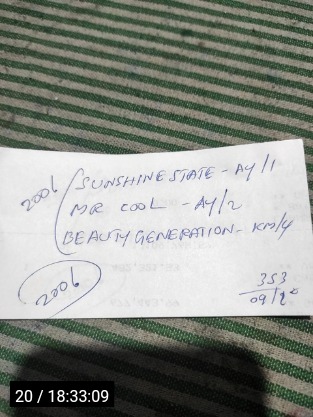 2006
SUNSHINE STATE - AY/1
MR COOL - AY/2
BEAUTY GENERATION - KM/4
2006
353
09/20
20 / 18:33:09